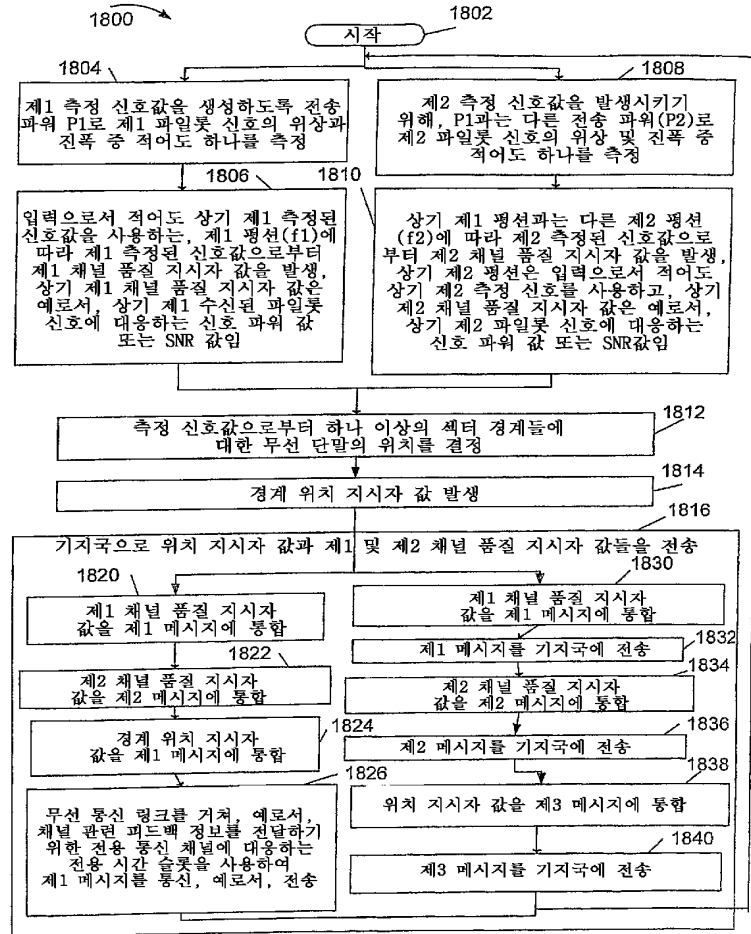 1800
시작
1802
1804
제1 측정 신호값을 생성하도록 전송
파워 P1로 제1 파일롯 신호의 위상과
진폭 중 적어도 하나를 측정
1808
제2 측정 신호값을 발생시키기
위해, P1과는 다른 전송 파워(P2)로
제2 파일롯 신호의 위상 및 진폭 중
적어도 하나를 측정
1806
입력으로서 적어도 상기 제1 측정된
신호값을 사용하는, 제1 펑션(f1)에
따라 제1 측정된 신호값으로부터
제1 채널 품질 지시자 값을 발생,
상기 제1 채널 품질 지시자 값은
예로서, 상기 제1 수신된 파일롯
신호에 대응하는 신호 파워 값
또는 SNR 값임
1810
상기 제1 펑션과는 다른 제2 펑션
(f2)에 따라 제2 측정된 신호값으로
부터 제2 채널 품질 지시자 값을 발생,
상기 제2 펑션은 입력으로서 적어도
상기 제2 측정 신호를 사용하고, 상기
제2 채널 품질 지시자 값은 예로서,
상기 제2 파일롯 신호에 대응하는
신호 파워 값 또는 SNR값임
측정 신호값으로부터 하나 이상의 섹터 경계들에
대한 무선 단말의 위치를 결정
1812
경계 위치 지시자 값 발생
1814
1816
기지국으로 위치 지시자 값과 제1 및 제2 채널 품질 지시자 값들을 전송
1820
제1 채널 품질 지시자
값을 제1 메시지에 통합
1822
제2 채널 품질 지시자
값을 제2 메시지에 통합
경계 위치 지시자
값을 제1 메시지에 통합
1824
1826
무선 통신 링크를 거쳐, 예로서,
채널 관련 피드백 정보를 전달하기
위한 전용 통신 채널에 대응하는
전용 시간 슬롯을 사용하여
제1 메시지를 통신, 예로서, 전송
1830
제1 채널 품질 지시자
값을 제1 메시지에 통합
제1 메시지를 기지국에 전송
1832
1834
제2 채널 품질 지시자
값을 제2 메시지에 통합
1836
제2 메시지를 기지국에 전송
1838
위치 지시자 값을 제3 메시지에 통합
1840
제3 메시지를 기지국에 전송